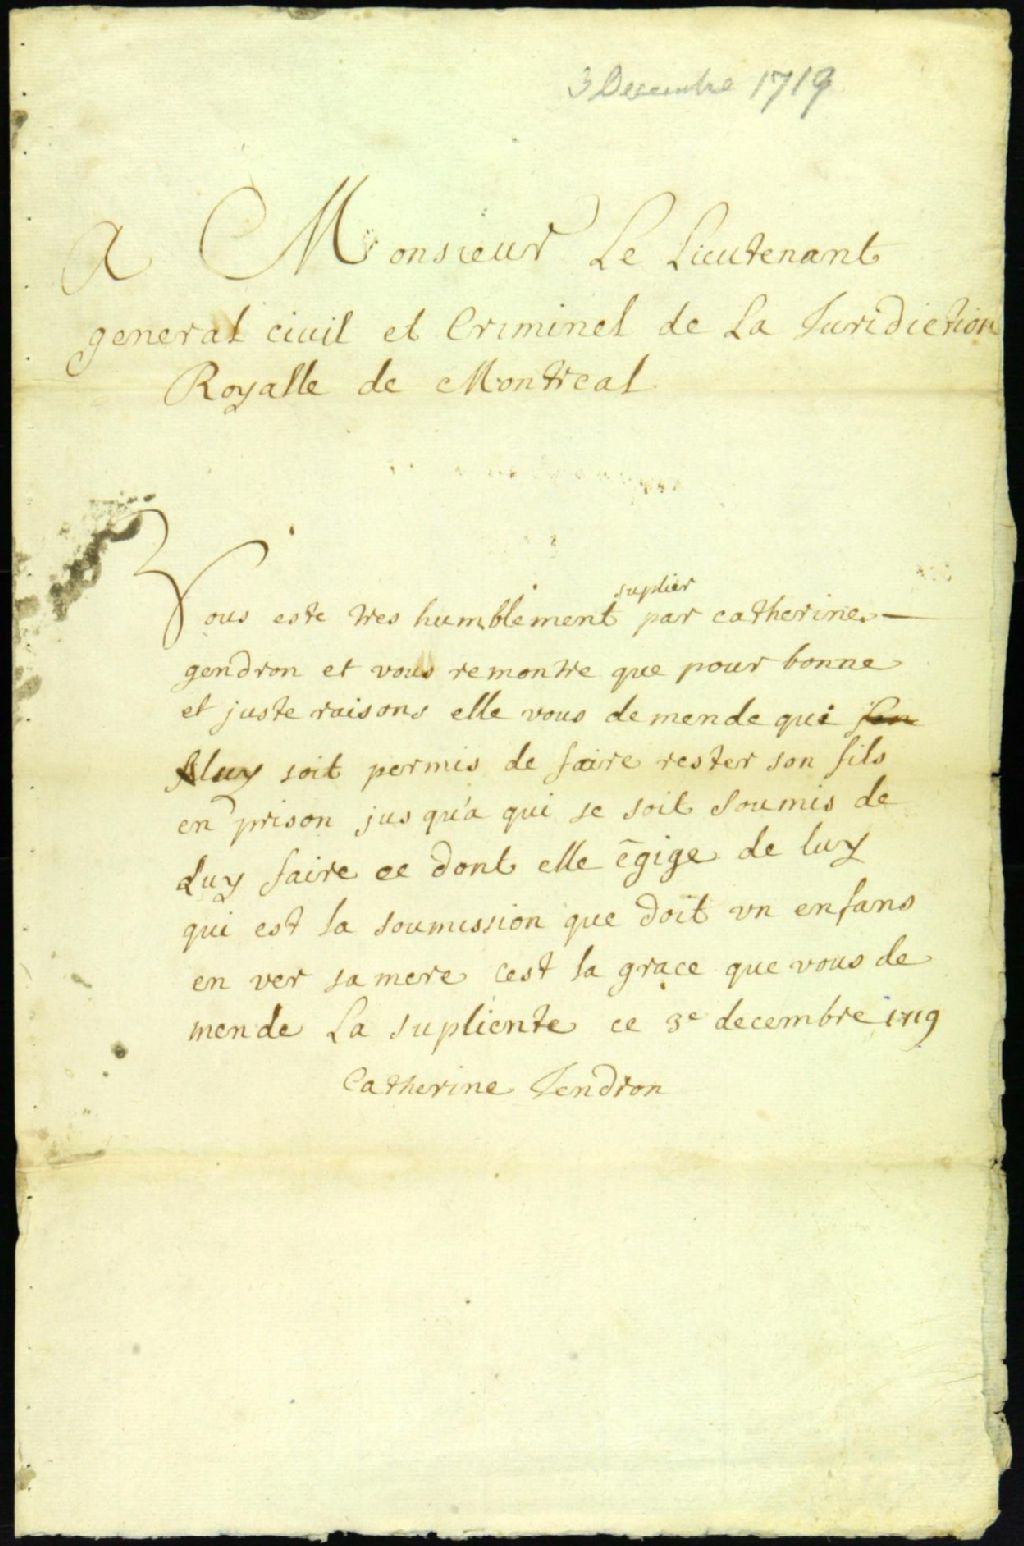 3 Decembre 1719
A Monsieur Le Lieutenant
general civil et Criminel de La Juridiction
Royalle de Montreal
suplier
Vous este tres humblement par catherine
gendron et vous remontre que pour bonne
et juste raisons elle vous de mende qui
luy soit permis de faire rester son fils
en prison jus qu'a qui se soit soumis de
Luy faire ce dont elle êgige de luy
qui est la soumission que doit vn enfans
en ver sa mere cest la grace que vous de
mende La supliente ce 3e decembre 1719
Catherine Jendron